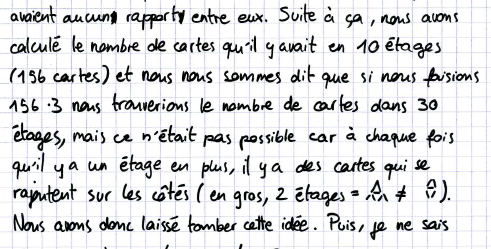 avaient aucun rapport entre eux. Suite à ça, nous avons
calculé le nombre de cartes qu'il y avait en 10 étages
(156 cartes) et nous nous sommes dit que si nous faisions
156·3 nous trouverions le nombre de cartes dans 30
étages, mais ce n'était pas possible car à chaque fois
qu'il y a un étage en plus, il y a des cartes qui se
rajoutent sur les côtés (en gros, 2 étages = ≠ ).
Nous avons donc laissé tomber cette idée. Puis, je ne sais